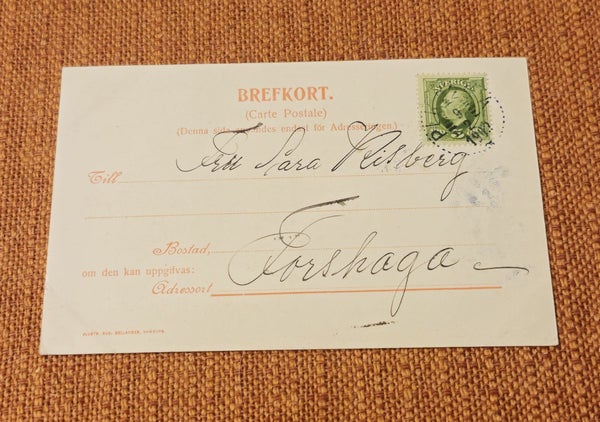 BREFKORT.
(Carte Postale)
(Denna sida användes endast för Adresseringen.)
SVERIGE
Till Fru Sara Klisberg
Bostad,
om den kan uppgifvas:
Adressort Forshaga